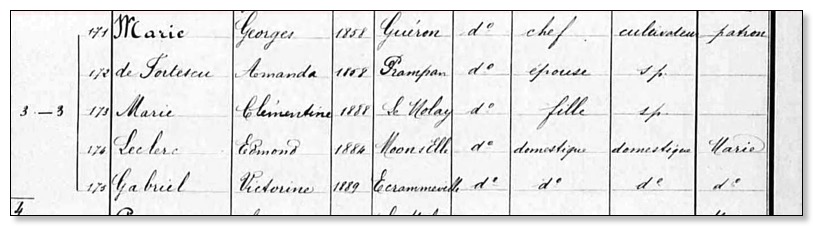 171 Marie Georges 1858 Guéron do chef cultivateur patron
172 de Fortescu Amanda 1858 Prampan do épouse sp.
3 — 3 173 Marie Clémentine 1888 Le Molay do fille sp.
174 Leclerc Edmond 1884 do domestique domestique Marie
175 Gabriel Victorine 1889 Ecrammeville do do do do
4